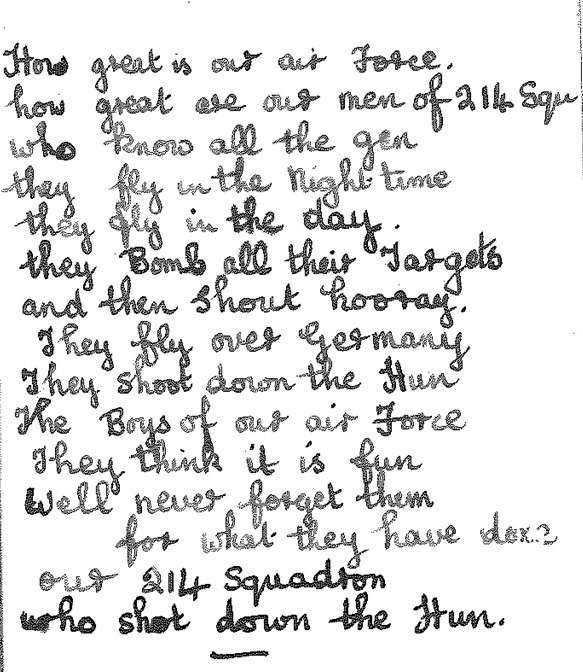 How great is our air Force.
how great are our men of 214 Squ
who know all the gen
they fly in the Night time
they fly in the day.
they Bomb all their Targets
and then shout hooray.
They fly over Germany
They shoot down the Hun
The Boys of our air Force
They think it is fun
Well never forget them
for what they have
our 214 Squadron
who shot down the Hun.